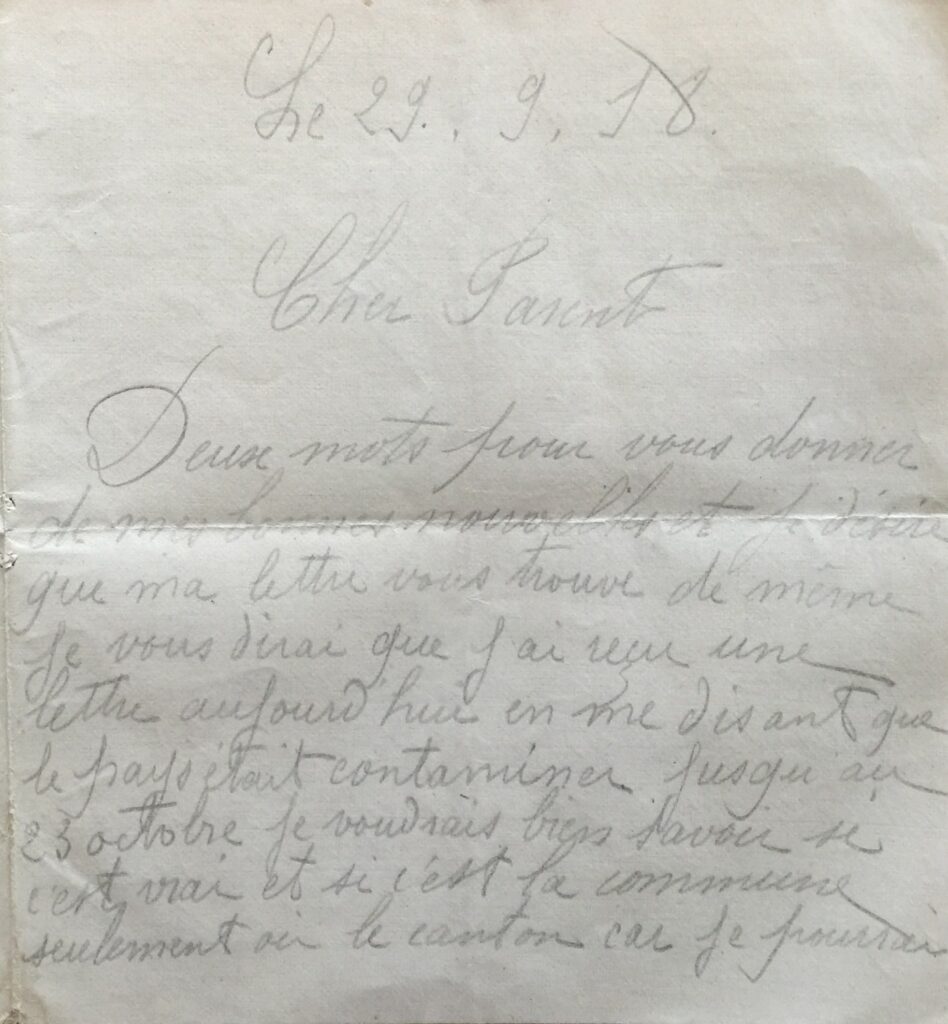 Le 29. 9. 18.
Cher Parent
Deux mots pour vous donner
de mes bonnes nouvelles et je désire
que ma lettre vous trouve de même
je vous dirai que j'ai reçu une
lettre aujourd'hui en me disant que
le pays était contaminer jusqu'au
23 octobre je voudrais bien savoir si
c'est vrai et si c'est la commune
seulement ou le canton car je pourrai